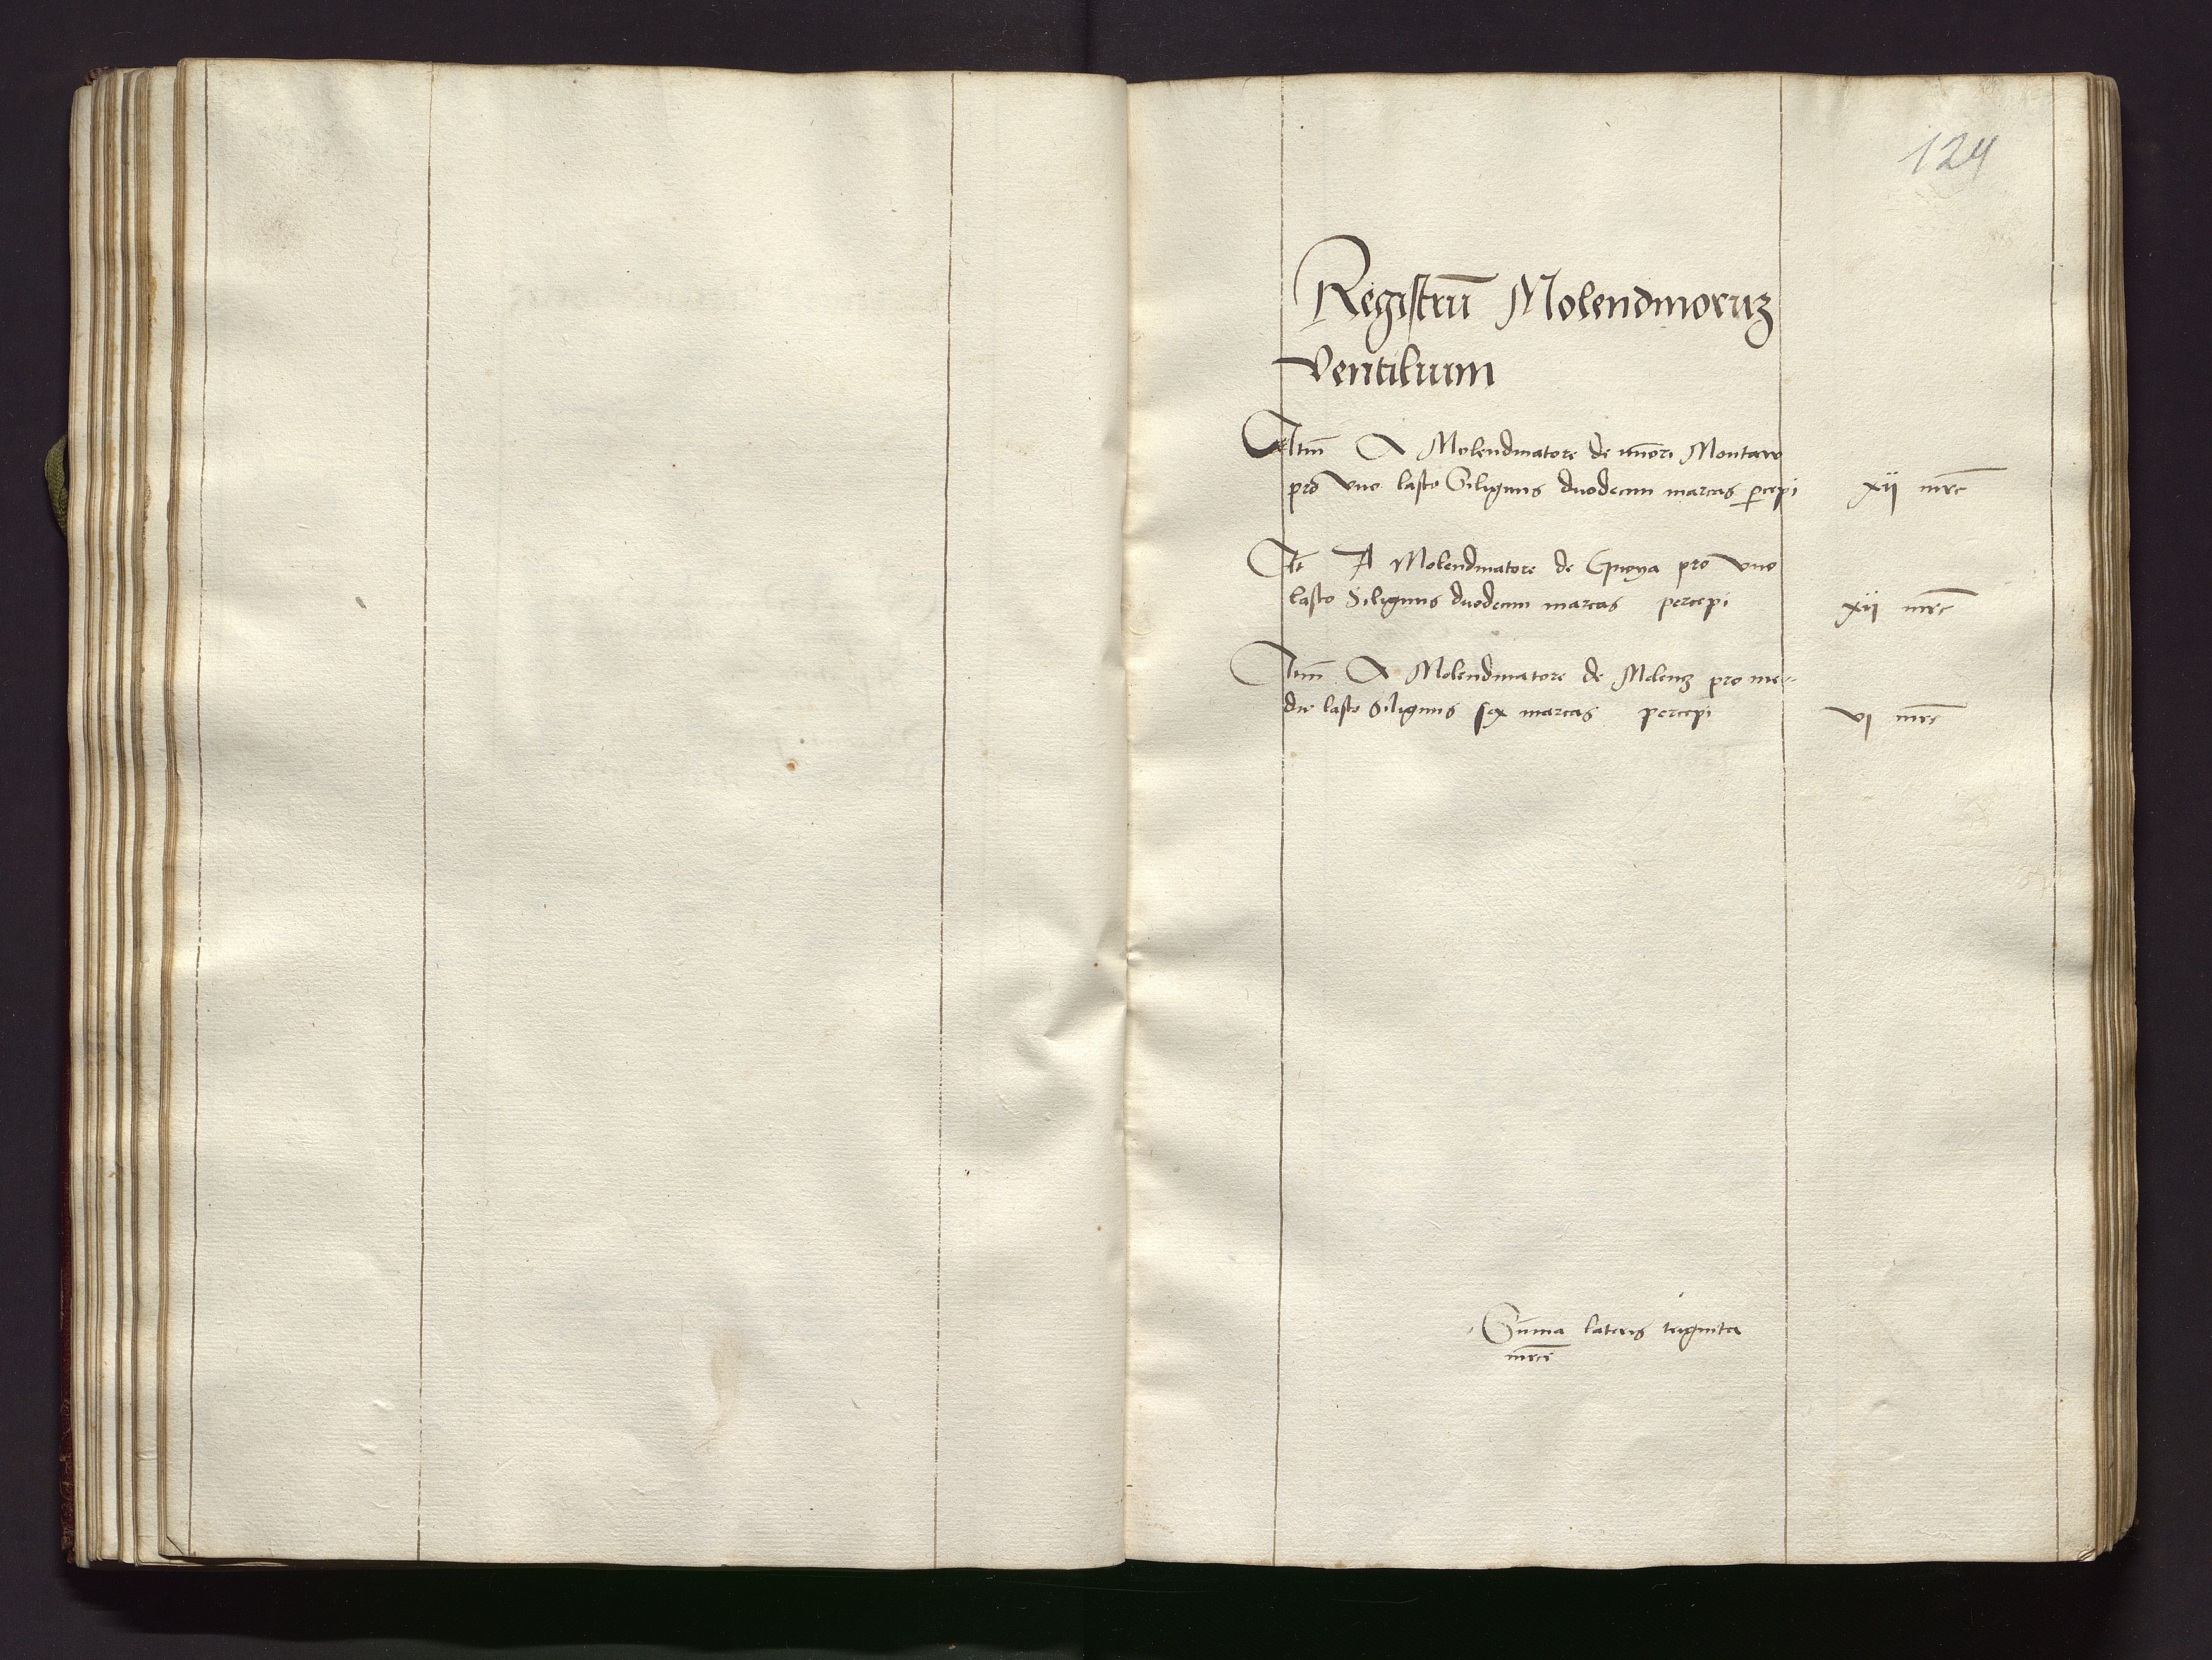 124
Registrū Molendinoruz
Ventilium
Itm̄ A Molendinatore de mīori Montaw
pro vno lasto Siliginis duodecim marcas ꝑcepi xij mrc̄
It̄ A Molendinatore de Gnoya pro vno
lasto Siliginis duodecim marcas percepi xij mrc̄
Itm̄ A Molendinatore de Milenz pro me-
dio lasto Siliginis sex marcas percepi vj mrc̄
Sūma lateris triginta
mrc̄